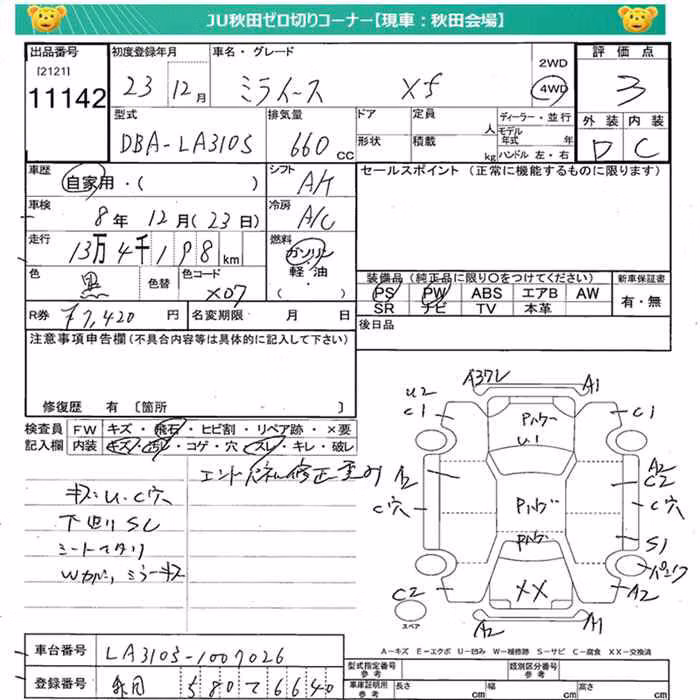 JU秋田ゼロ切りコーナー【現車：秋田会場】
出品番号 初度登録年月 車名・グレード 2WD 評価点
[2121] 23 12月 ミライース Xf 4WD 3
11142
型式 排気量 ドア 定員 人 ディーラー・並行 外装 内装
DBA-LA310S 660CC 形状 積載 kg モデル年式 年 D C
ハンドル 左・右
車歴 自家用・( ) シフト A/T セールスポイント (正常に機能するものに限ります)
車検 8年 12月 (23日) 冷房 A/C
走行 13万4千198km 燃料 ガソリン・軽油・( )
色 黒 色替 色コード X07 装備品 (純正品に限り○をつけてください) 新車保証書
PS PW ABS エアB AW 有・無
SR ナビ TV 本革
R券 ¥7,420円 名変期限 月 日 後日品
注意事項申告欄 (不具合内容等は具体的に記入して下さい)
修復歴 有 [箇所
検査員 FW キズ・飛石・ヒビ割・リペア跡・×要
記入欄 内装 キズ・汚レ・コゲ・穴・スレ・キレ・破レ
エンドパネル修正歪み
キズ U・C穴
下廻りSC
シートヘタリ
A37レ A1
U2
C1 C1
Pハゲ
U1
A2 A2
C2
C穴 Pハゲ C穴
Pハゲ S1
パンク
C2 XX A2
スペア
A2 A1
A-キズ E-エクボ U-凹み W-補修跡 S-サビ C-腐食 XX-交換済
車台番号 LA310S-1007026
登録番号 秋田 580 て 6640
型式指定番号 参考 類別区分番号 参考
車庫証明用 参考 長さ cm 幅 cm 高さ cm